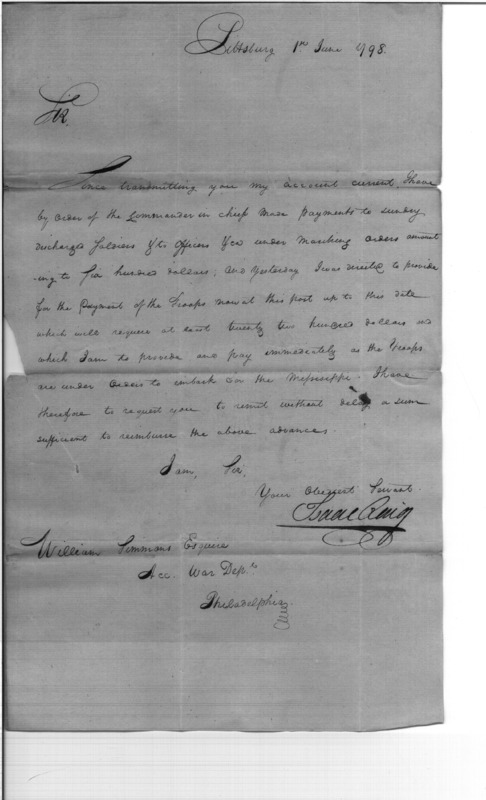 Pittsburg 1st June 1798.
Sir.
Since transmitting you my account current, I have
by order of the Commander in chief made payments to sundry
discharged Soldiers & to officers &ca under marching orders amount
-ing to Six hundred dollars; and yesterday I was directed to provide
for the payment of the Troops now at this post up to this date
which will require at least twenty two hundred dollars
which I am to provide and pay immediately as the Troops
are under orders to embark for the Mississippi. I have
therefore to request you to remit without delay a sum
sufficient to reimburse the above advances.
I am, Sir.
Your Obedient Servant.
Isaac Craig
William Simmons Esquire
Acc. War Dept.
Philadelphia